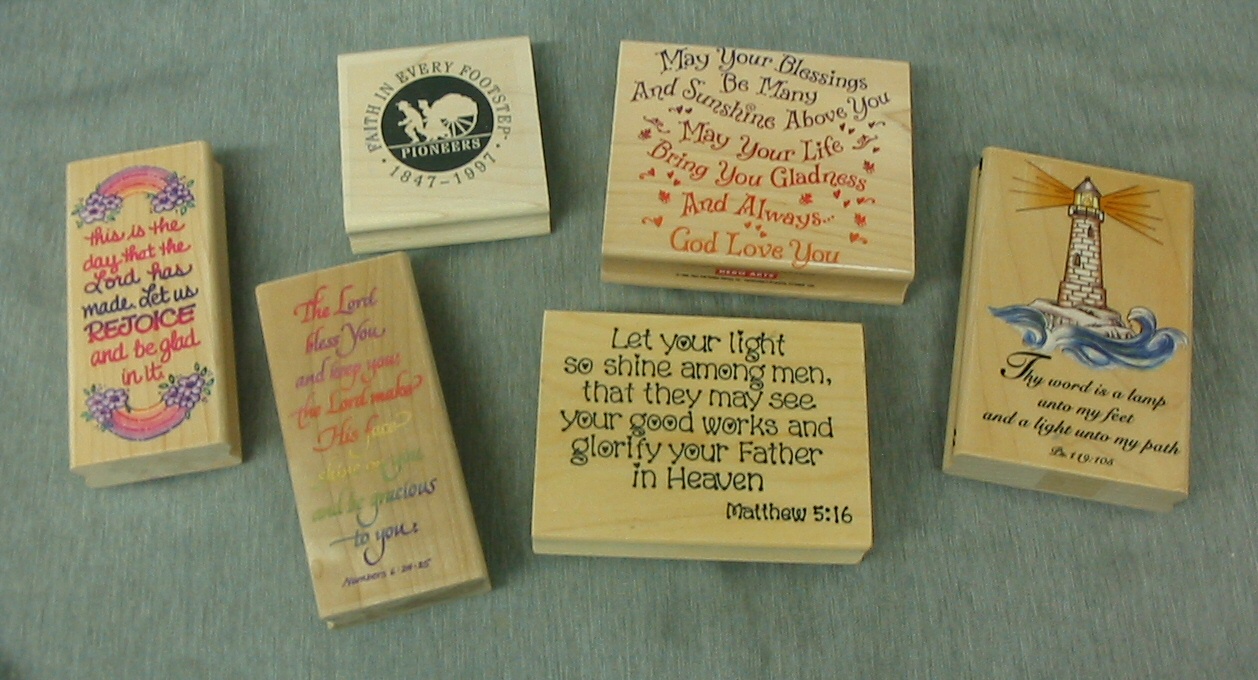 FAITH IN EVERY FOOTSTEP
PIONEERS
• 1847-1997 •
May Your Blessings
Be Many
And Sunshine Above You
May Your Life
Bring You Gladness
And Always...
God Love You
HERO ARTS
this is the
day that the
Lord has
made. Let us
REJOICE
and be glad
in it.
The Lord
bless You
and keep you:
the Lord make
His face
shine on you
and be gracious
to you:
Numbers 6:24-25
Let your light
so shine among men,
that they may see
your good works and
glorify your Father
in Heaven
Matthew 5:16
Thy word is a lamp
unto my feet
and a light unto my path
Ps. 119:105